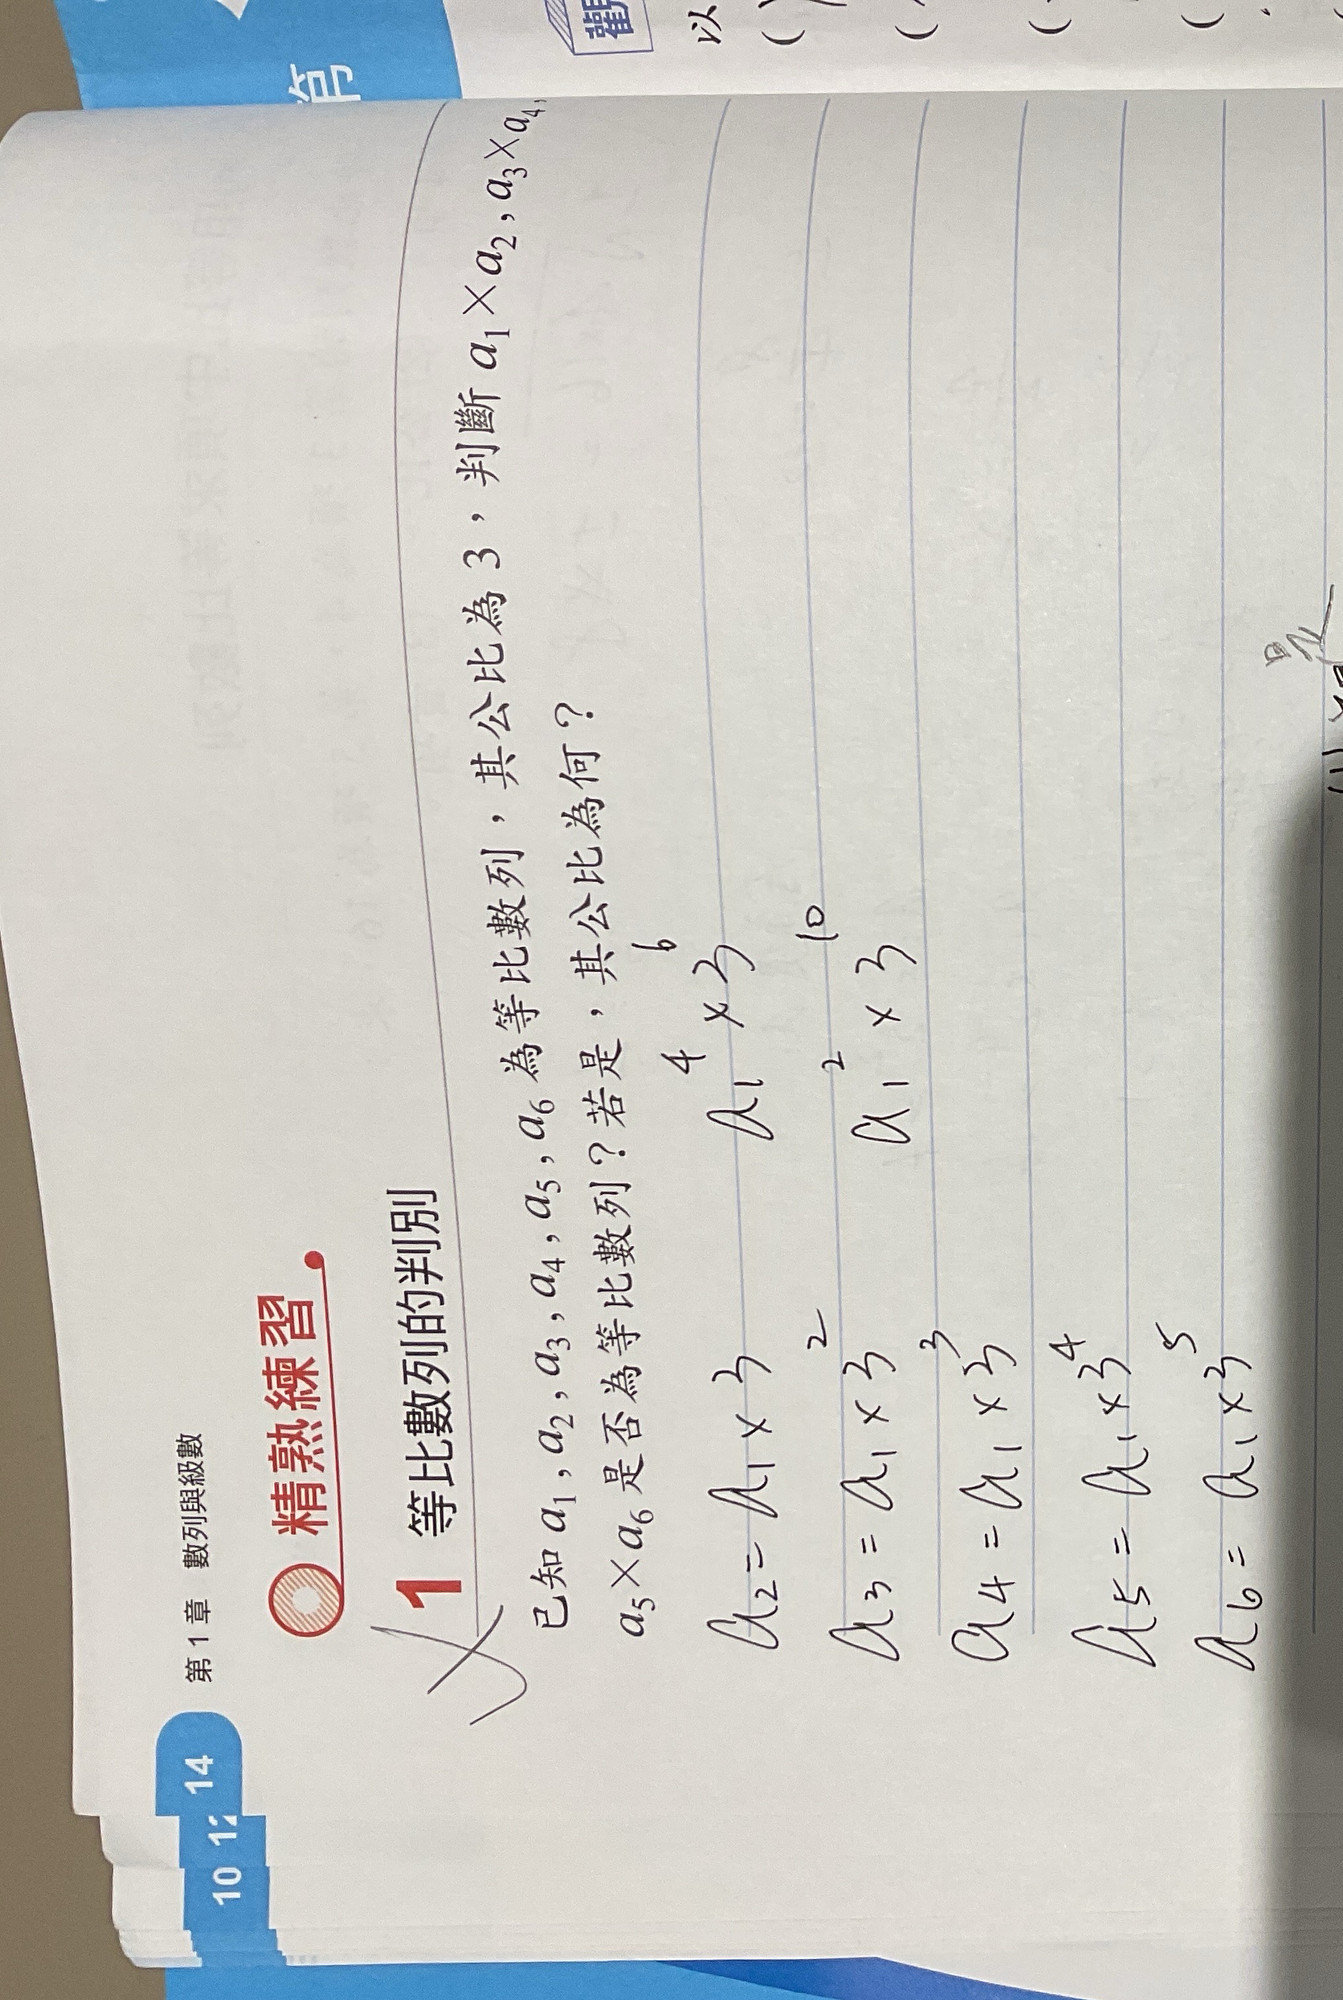 10 12 14 第1章 數列與級數
精熟練習
1 等比數列的判別
已知 a₁, a₂, a₃, a₄, a₅, a₆ 為等比數列,其公比為 3,判斷 a₁×a₂, a₃×a₄,
a₅×a₆ 是否為等比數列?若是,其公比為何?
a₂ = a₁ × 3 a₁⁴ × 3⁶
a₃ = a₁ × 3² a₁² × 3¹⁰
a₄ = a₁ × 3³
a₅ = a₁ × 3⁴
a₆ = a₁ × 3⁵
是
觀
以
(
(
(
(